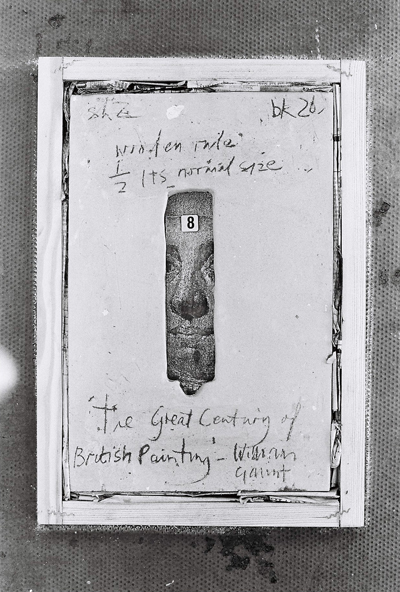 bk 26
wooden rule
1/2 its normal size
8
'The Great Century of
British Painting' - William
Gaunt